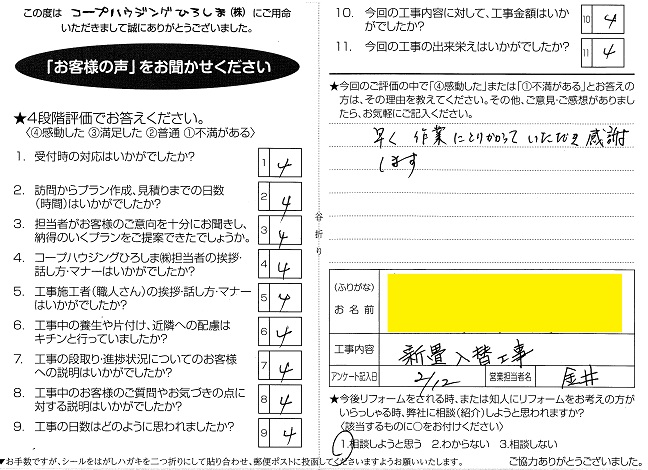 この度は コープハウジングひろしま(株) にご用命
いただきまして誠にありがとうございました。
「お客様の声」をお聞かせください
★4段階評価でお答えください。
〈④感動した ③満足した ②普通 ①不満がある〉
1. 受付時の対応はいかがでしたか?
1 4
2. 訪問からプラン作成、見積りまでの日数
(時間)はいかがでしたか?
2 4
3. 担当者がお客様のご意向を十分にお聞きし、
納得のいくプランをご提案できたでしょうか。
3 4
4. コープハウジングひろしま㈱担当者の挨拶・
話し方・マナーはいかがでしたか?
4 4
5. 工事施工者(職人さん)の挨拶・話し方・マナー
はいかがでしたか?
5 4
6. 工事中の養生や片付け、近隣への配慮は
キチンと行っていましたか?
6 4
7. 工事の段取り・進捗状況についてのお客様
への説明はいかがでしたか?
7 4
8. 工事中のお客様のご質問やお気づきの点に
対する説明はいかがでしたか?
8 4
9. 工事の日数はどのように思われましたか?
9 4
▼お手数ですが、シールをはがしハガキを二つ折りにして貼り合わせ、郵便ポストに投函してくださいますようお願いいたします。
谷折り
10. 今回の工事内容に対して、工事金額はいか
がでしたか?
10 4
11. 今回の工事の出来栄えはいかがでしたか?
11 4
★今回のご評価の中で「④感動した」または「①不満がある」とお答えの
方は、その理由を教えてください。その他、ご意見・ご感想がありまし
たら、お気軽にご記入ください。
早く 作業にとりかかって いただき 感謝
します
(ふりがな)
お名前
工事内容
新畳入替工事
アンケート記入日
2/12
営業担当者名
金井
★今後リフォームをされる時、または知人にリフォームをお考えの方が
いらっしゃる時、弊社に相談(紹介)しようと思われますか?
〈該当するものに○をお付けください〉
1.相談しようと思う 2.わからない 3.相談しない
ご協力ありがとうございました。